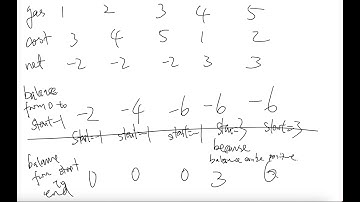 gas 1 2 3 4 5
cost 3 4 5 1 2
net -2 -2 -2 3 3
balance
from 0 to
start-1 -2 -4 -6 -6 -6
start=-1 start=-1 start=-1 start=3 start=3
because
balance from start to end 0 0 0 3 6
balance can be positive